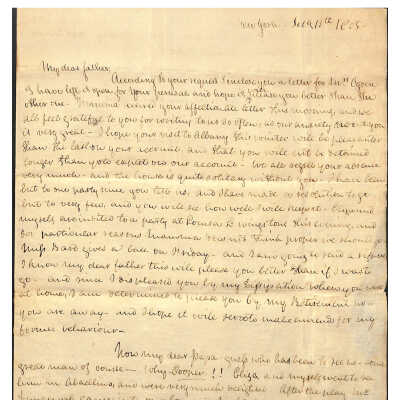 New York Feb 11th 1805
My dear father,
According to your request I enclose you a letter for Mrs Ogden
I have left it open for your perusal and hope it will please you better than the
other one. Mamma received your affectionate letter this morning, and we
all feel grateful to you for writing to us so often, as our anxiety about you
is very great - I hope your visit to Albany this winter will be pleasanter
than the last on your account, and that you will not be detained
longer than you expect on our account - We all regret your absence
very much - and the house is quite solitary without you - I have been
but to one party since you left us, and I have made a resolution to go
but to very few, and you will see how well I will keep it - Eliza and
myself are invited to a party at this evening, and
for particular reasons Mamma does not think proper we should go
Miss Bard gives a ball on Friday - and I am going to send a refusal
I know my dear father this will please you better than if I was to
go - and since I displeased you by my when you was
at home, I am determined to please you by my Retirement now
you are away - and I hope it will serve to make amends for my
former behaviour -
Now my dear Papa guess who has been to see us - some
great man of course - Why Cooper!! Eliza and myself went to see
him in and were very much delighted After the play